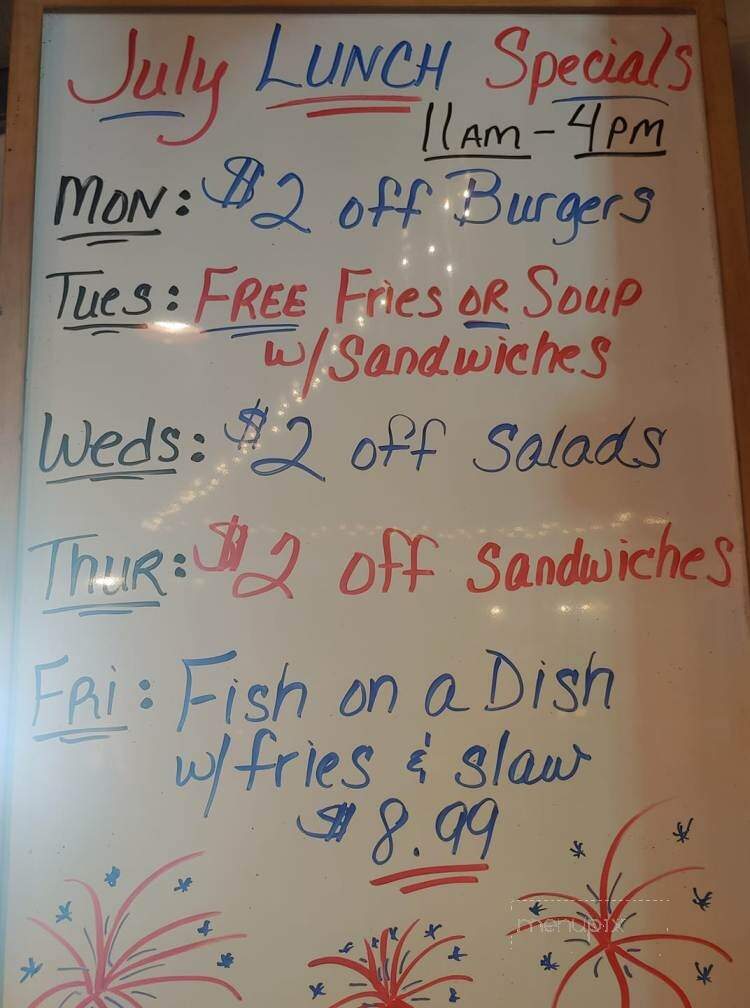 July LUNCH Specials
11AM - 4PM
MON: $2 off Burgers
Tues: FREE Fries OR Soup
w/Sandwiches
Weds: $2 off Salads
THUR: $2 off Sandwiches
FRi: Fish on a Dish
w/fries & slaw
$8.99
menupix